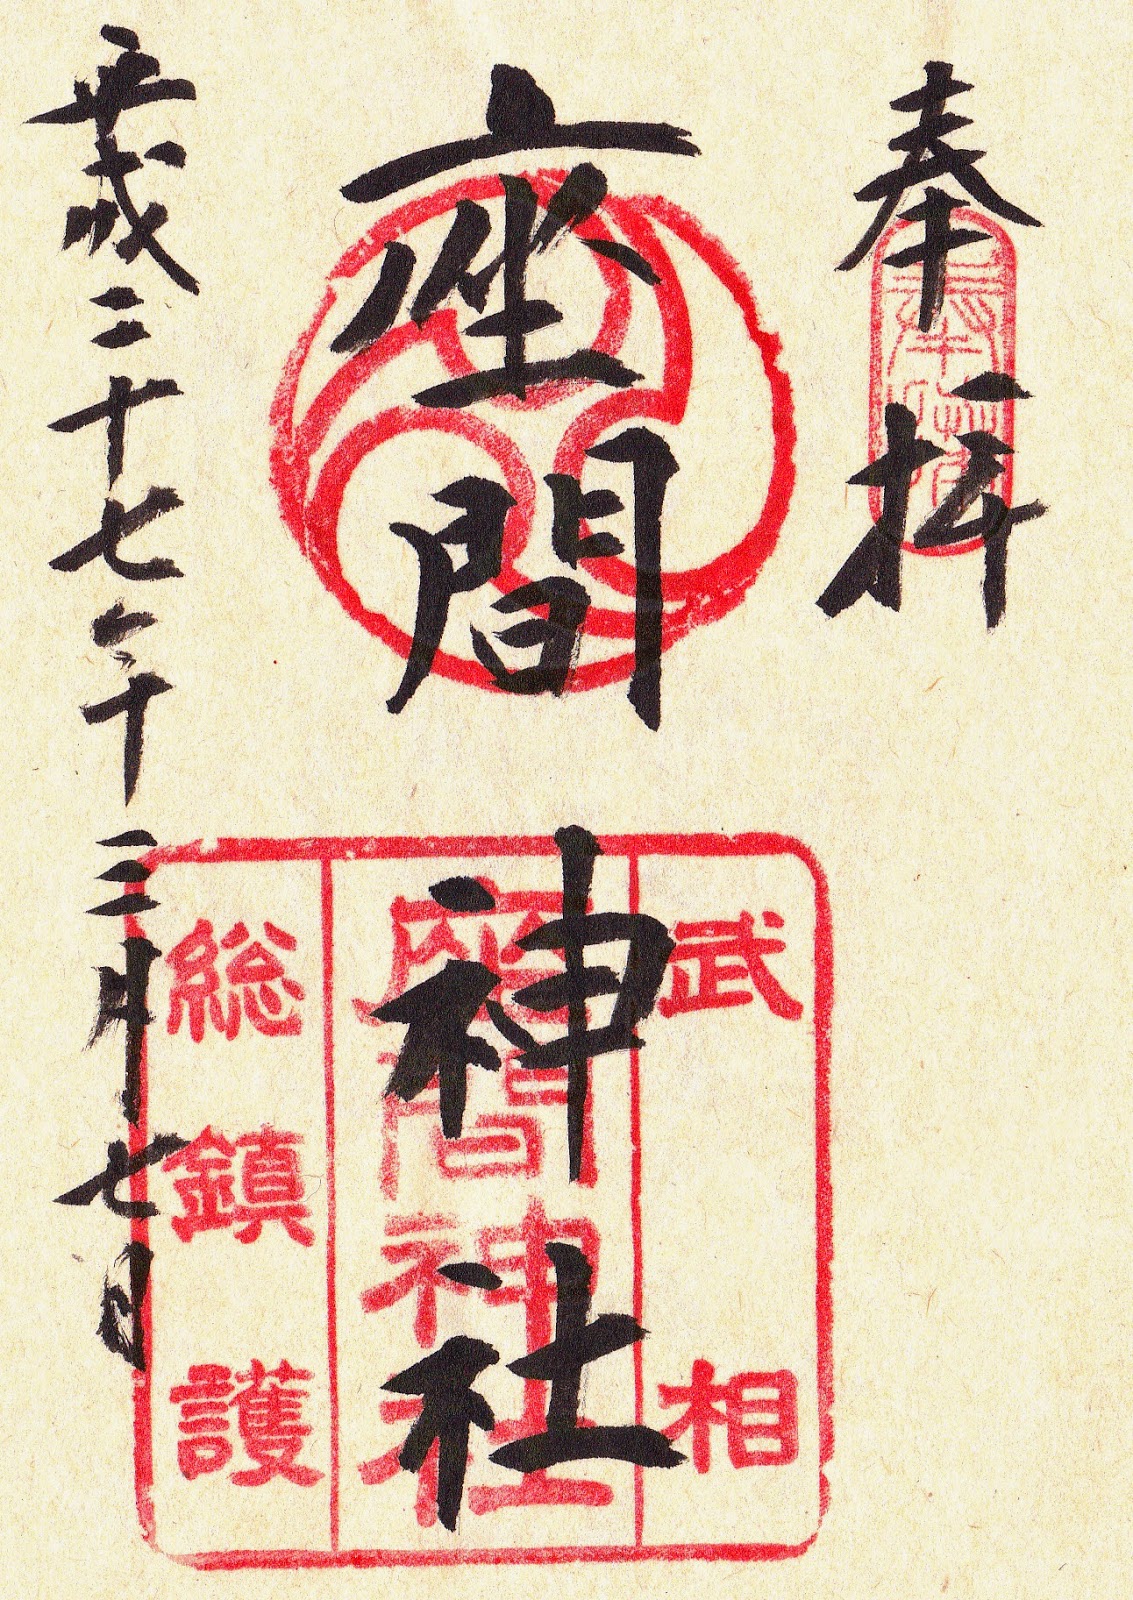 奉拝
座間神社
武相
座間神社
総鎮護
平成二十七年三月七日